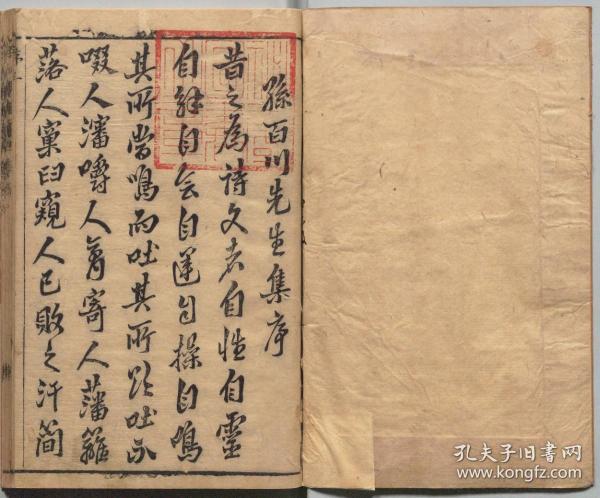 孫百川先生集序
昔之為詩文者自性自靈
自解自会自運自操自鳴
其所當鳴而吐其所欲吐不
啜人瀋嚼人胾寄人藩籬
落人窠臼窺人已敗之汗簡
孔夫子旧书网
www.kongfz.com